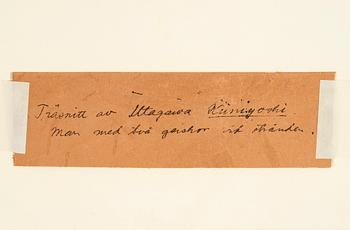 Träsnitt av Utagawa Kuniyoshi.
Man med två geishor vid stranden.